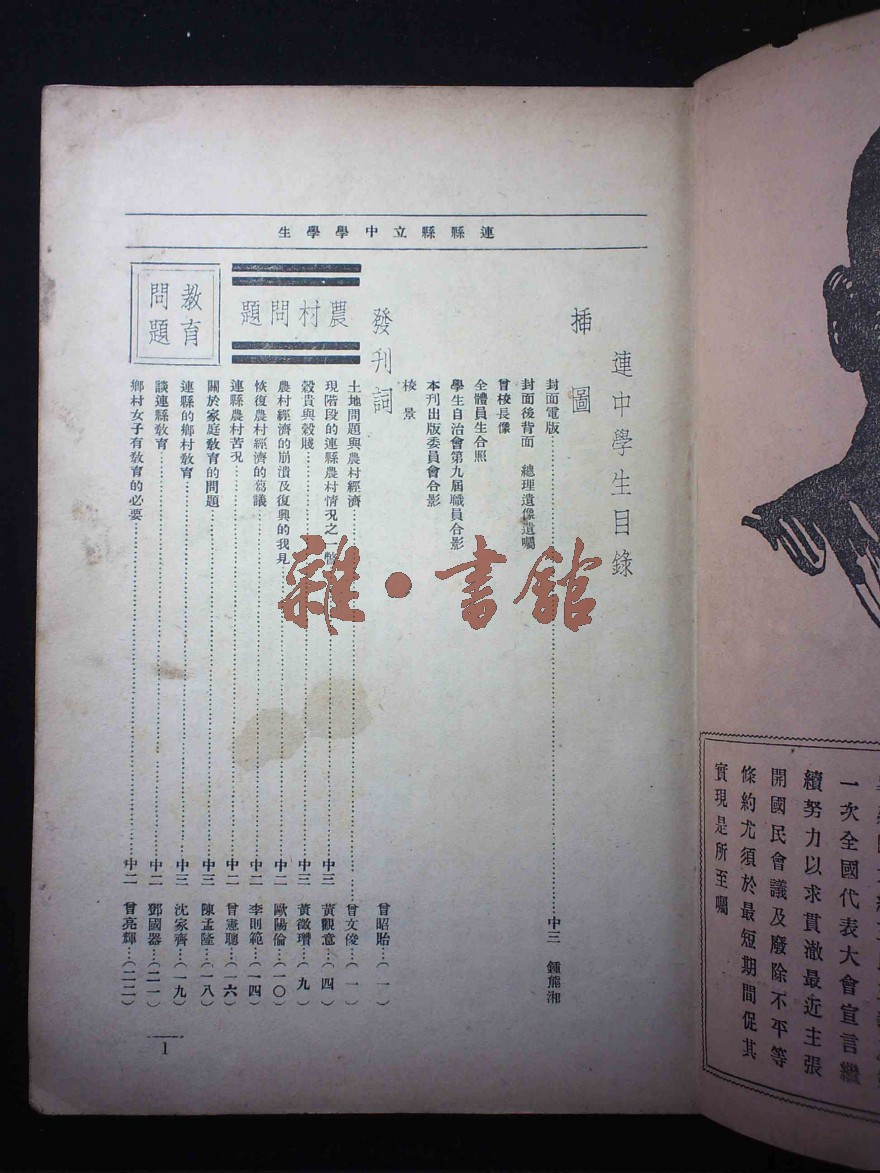 連縣縣立中學學生
連中學生目錄
插圖
封面電版……中三 鍾熊湘
封面後背面 總理遺像遺囑
曾校長像
全體員生合照
學生自治會第九屆職員合影
本刊出版委員會合影
校景
發刊詞 曾昭貽…(一)
農村問題
土地問題與農村經濟……曾文俊…(一)
現階段的連縣農村情况之一瞥……中三 黃觀意…(四)
穀貴與穀賤……中三 黃徵瓚…(九)
農村經濟的崩潰及復興的我見……中一 歐陽倫…(一〇)
恢復農村經濟的芻議……中二 李則範…(一四)
連縣農村苦况……中一 曾憲聰…(一六)
教育問題
關於家庭教育的問題……中三 陳孟隆…(一八)
連縣的鄉村教育……中三 沈家齊…(一九)
談連縣教育……中二 鄧國器…(二一)
鄉村女子有教育的必要……中二 曾亮輝…(二二)
1
雜·書館
一次全國代表大會宣言繼
續努力以求貫澈最近主張
開國民會議及廢除不平等
條約尤須於最短期間促其
實現是所至囑